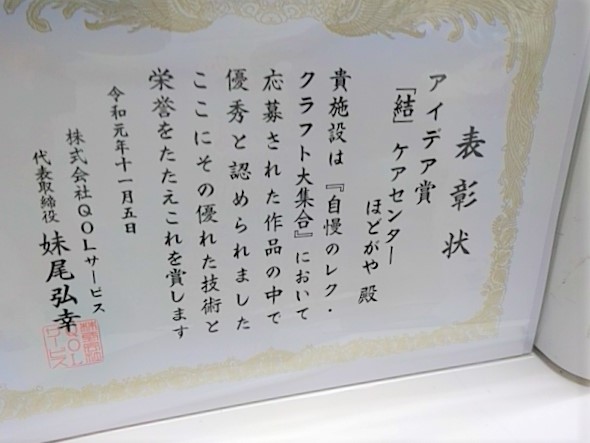 表彰状
アイデア賞
「結」ケアセンター
ほどがや 殿
貴施設は『自慢のレク・
クラフト大集合』において
応募された作品の中で
優秀と認められました
ここにその優れた技術と
栄誉をたたえこれを賞します
令和元年十一月五日
株式会社QOLサービス
代表取締役 妹尾弘幸
株式会社
QOL
サービス